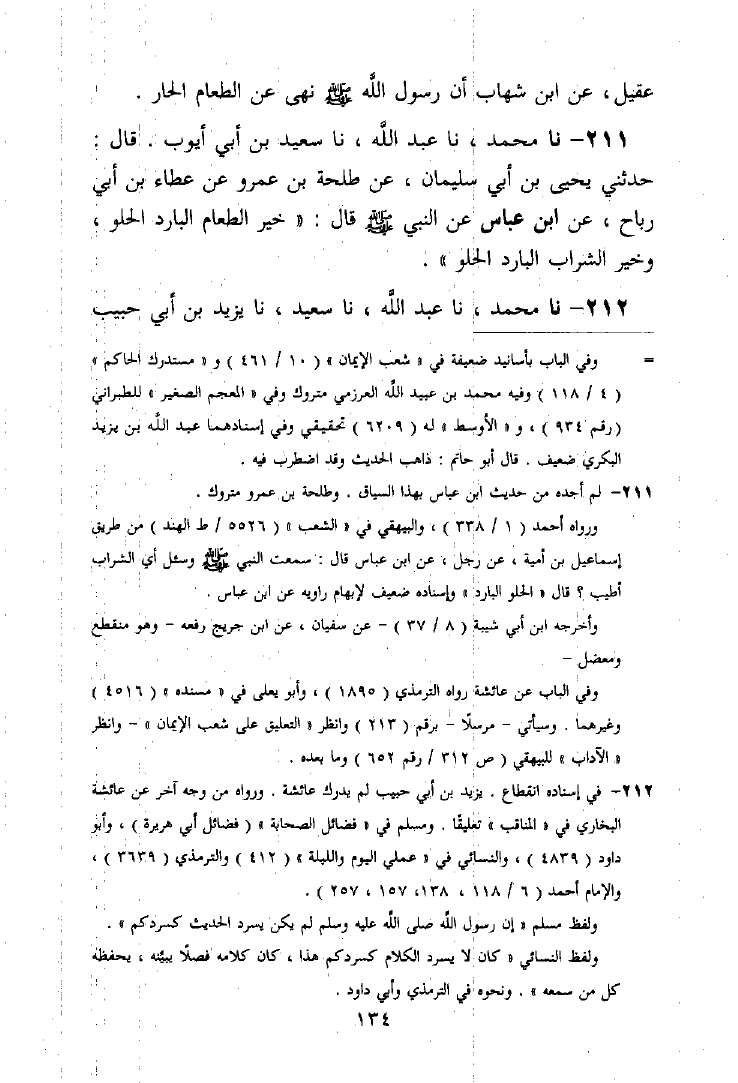 عقيل ، عن ابن شهاب أن رسول اللَّه ﷺ نهى عن الطعام الحار .
٢١١– نا محمد ، نا عبد اللَّه ، نا سعيد بن أبي أيوب . قال :
حدثني يحيى بن أبي سليمان ، عن طلحة بن عمرو عن عطاء بن أبي
رباح ، عن ابن عباس عن النبي ﷺ قال : « خير الطعام البارد الحلو ،
وخير الشراب البارد الحلو » .
٢١٢– نا محمد ، نا عبد اللَّه ، نا سعيد ، نا يزيد بن أبي حبيب
= وفي الباب بأسانيد ضعيفة في « شعب الإيمان » ( ١٠ / ٤٦١ ) و « مستدرك الحاكم »
( ٤ / ١١٨ ) وفيه محمد بن عبيد اللَّه العرزمي متروك وفي « المعجم الصغير » للطبراني
( رقم ٩٣٤ ) ، و « الأوسط » له ( ٦٢٠٩ ) تحقيقي وفي إسنادهما عبد اللَّه بن يزيد
البكري ضعيف . قال أبو حاتم : ذاهب الحديث وقد اضطرب فيه .
٢١١– لم أجده من حديث ابن عباس بهذا السياق . وطلحة بن عمرو متروك .
ورواه أحمد ( ١ / ٣٣٨ ) ، والبيهقي في « الشعب » ( ٥٥٢٦ / ط الهند ) من طريق
إسماعيل بن أمية ، عن رجل ، عن ابن عباس قال : سمعت النبي ﷺ وسئل أي الشراب
أطيب ؟ قال « الحلو البارد » وإسناده ضعيف لإبهام راويه عن ابن عباس .
وأخرجه ابن أبي شيبة ( ٨ / ٣٧ ) – عن سفيان ، عن ابن جريج رفعه – وهو منقطع
ومعضل –
وفي الباب عن عائشة رواه الترمذي ( ١٨٩٥ ) ، وأبو يعلى في « مسنده » ( ٤٥١٦ )
وغيرهما . وسيأتي – مرسلًا – برقم ( ٢١٣ ) وانظر « التعليق على شعب الإيمان » – وانظر
« الآداب » للبيهقي ( ص ٣١٢ / رقم ٦٥٢ ) وما بعده .
٢١٢– في إسناده انقطاع . يزيد بن أبي حبيب لم يدرك عائشة . ورواه من وجه آخر عن عائشة
البخاري في « المناقب » تعليقًا . ومسلم في « فضائل الصحابة » ( فضائل أبي هريرة ) ، وأبو
داود ( ٤٨٣٩ ) ، والنسائي في « عملي اليوم والليلة » ( ٤١٢ ) والترمذي ( ٣٦٣٩ ) ،
والإمام أحمد ( ٦ / ١١٨ ، ١٣٨، ١٥٧ ، ٢٥٧ ) .
ولفظ مسلم « إن رسول اللَّه صلى اللَّه عليه وسلم لم يكن يسرد الحديث كسردكم » .
ولفظ النسائي « كان لا يسرد الكلام كسردكم هذا ، كان كلامه فصلًا يبيّنه ، يحفظه
كل من سمعه » . ونحوه في الترمذي وأبي داود .
١٣٤